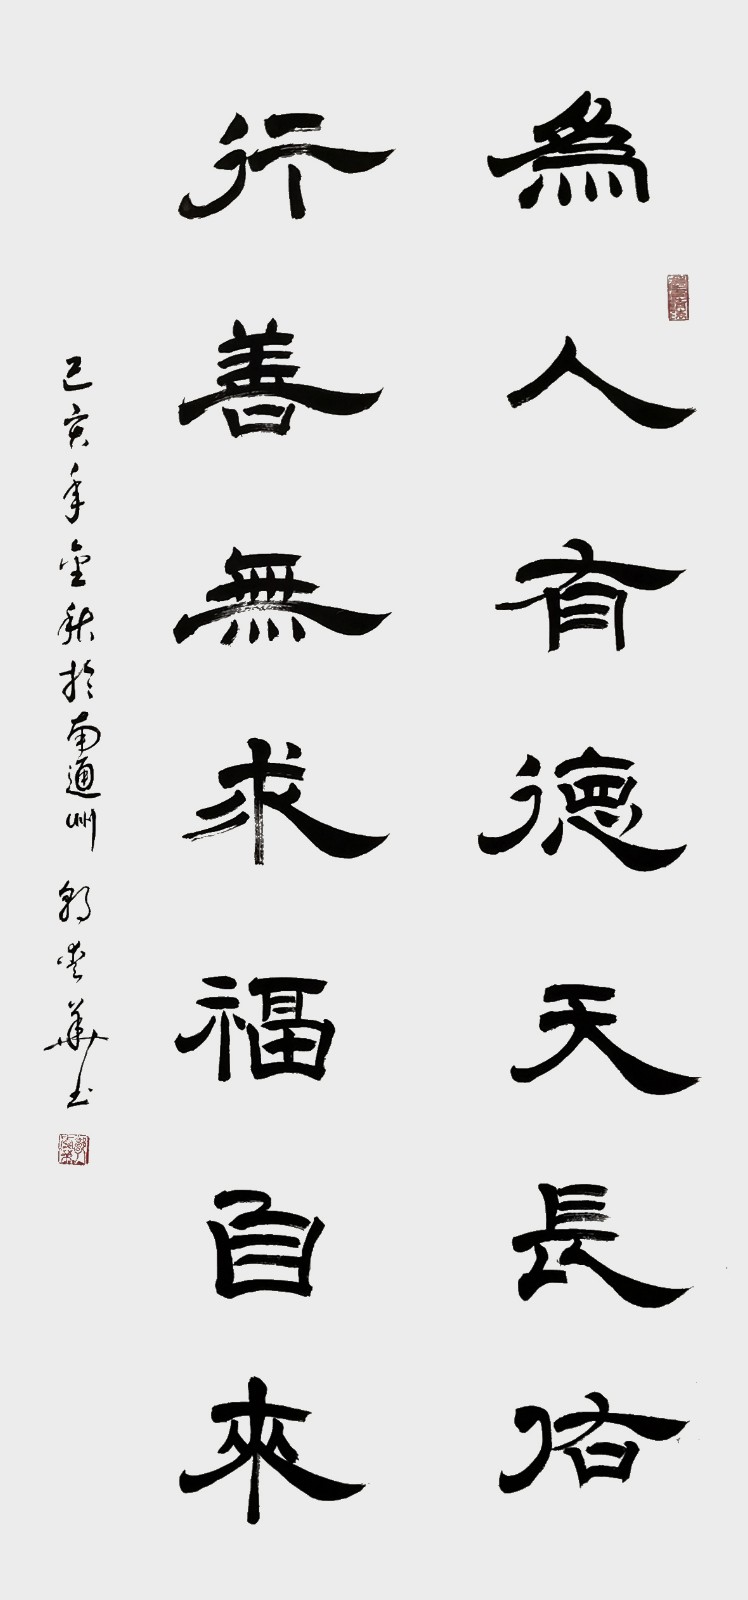 為人有德天長佑
行善無求福自來
己亥年金秋於南通州 郭愛華书